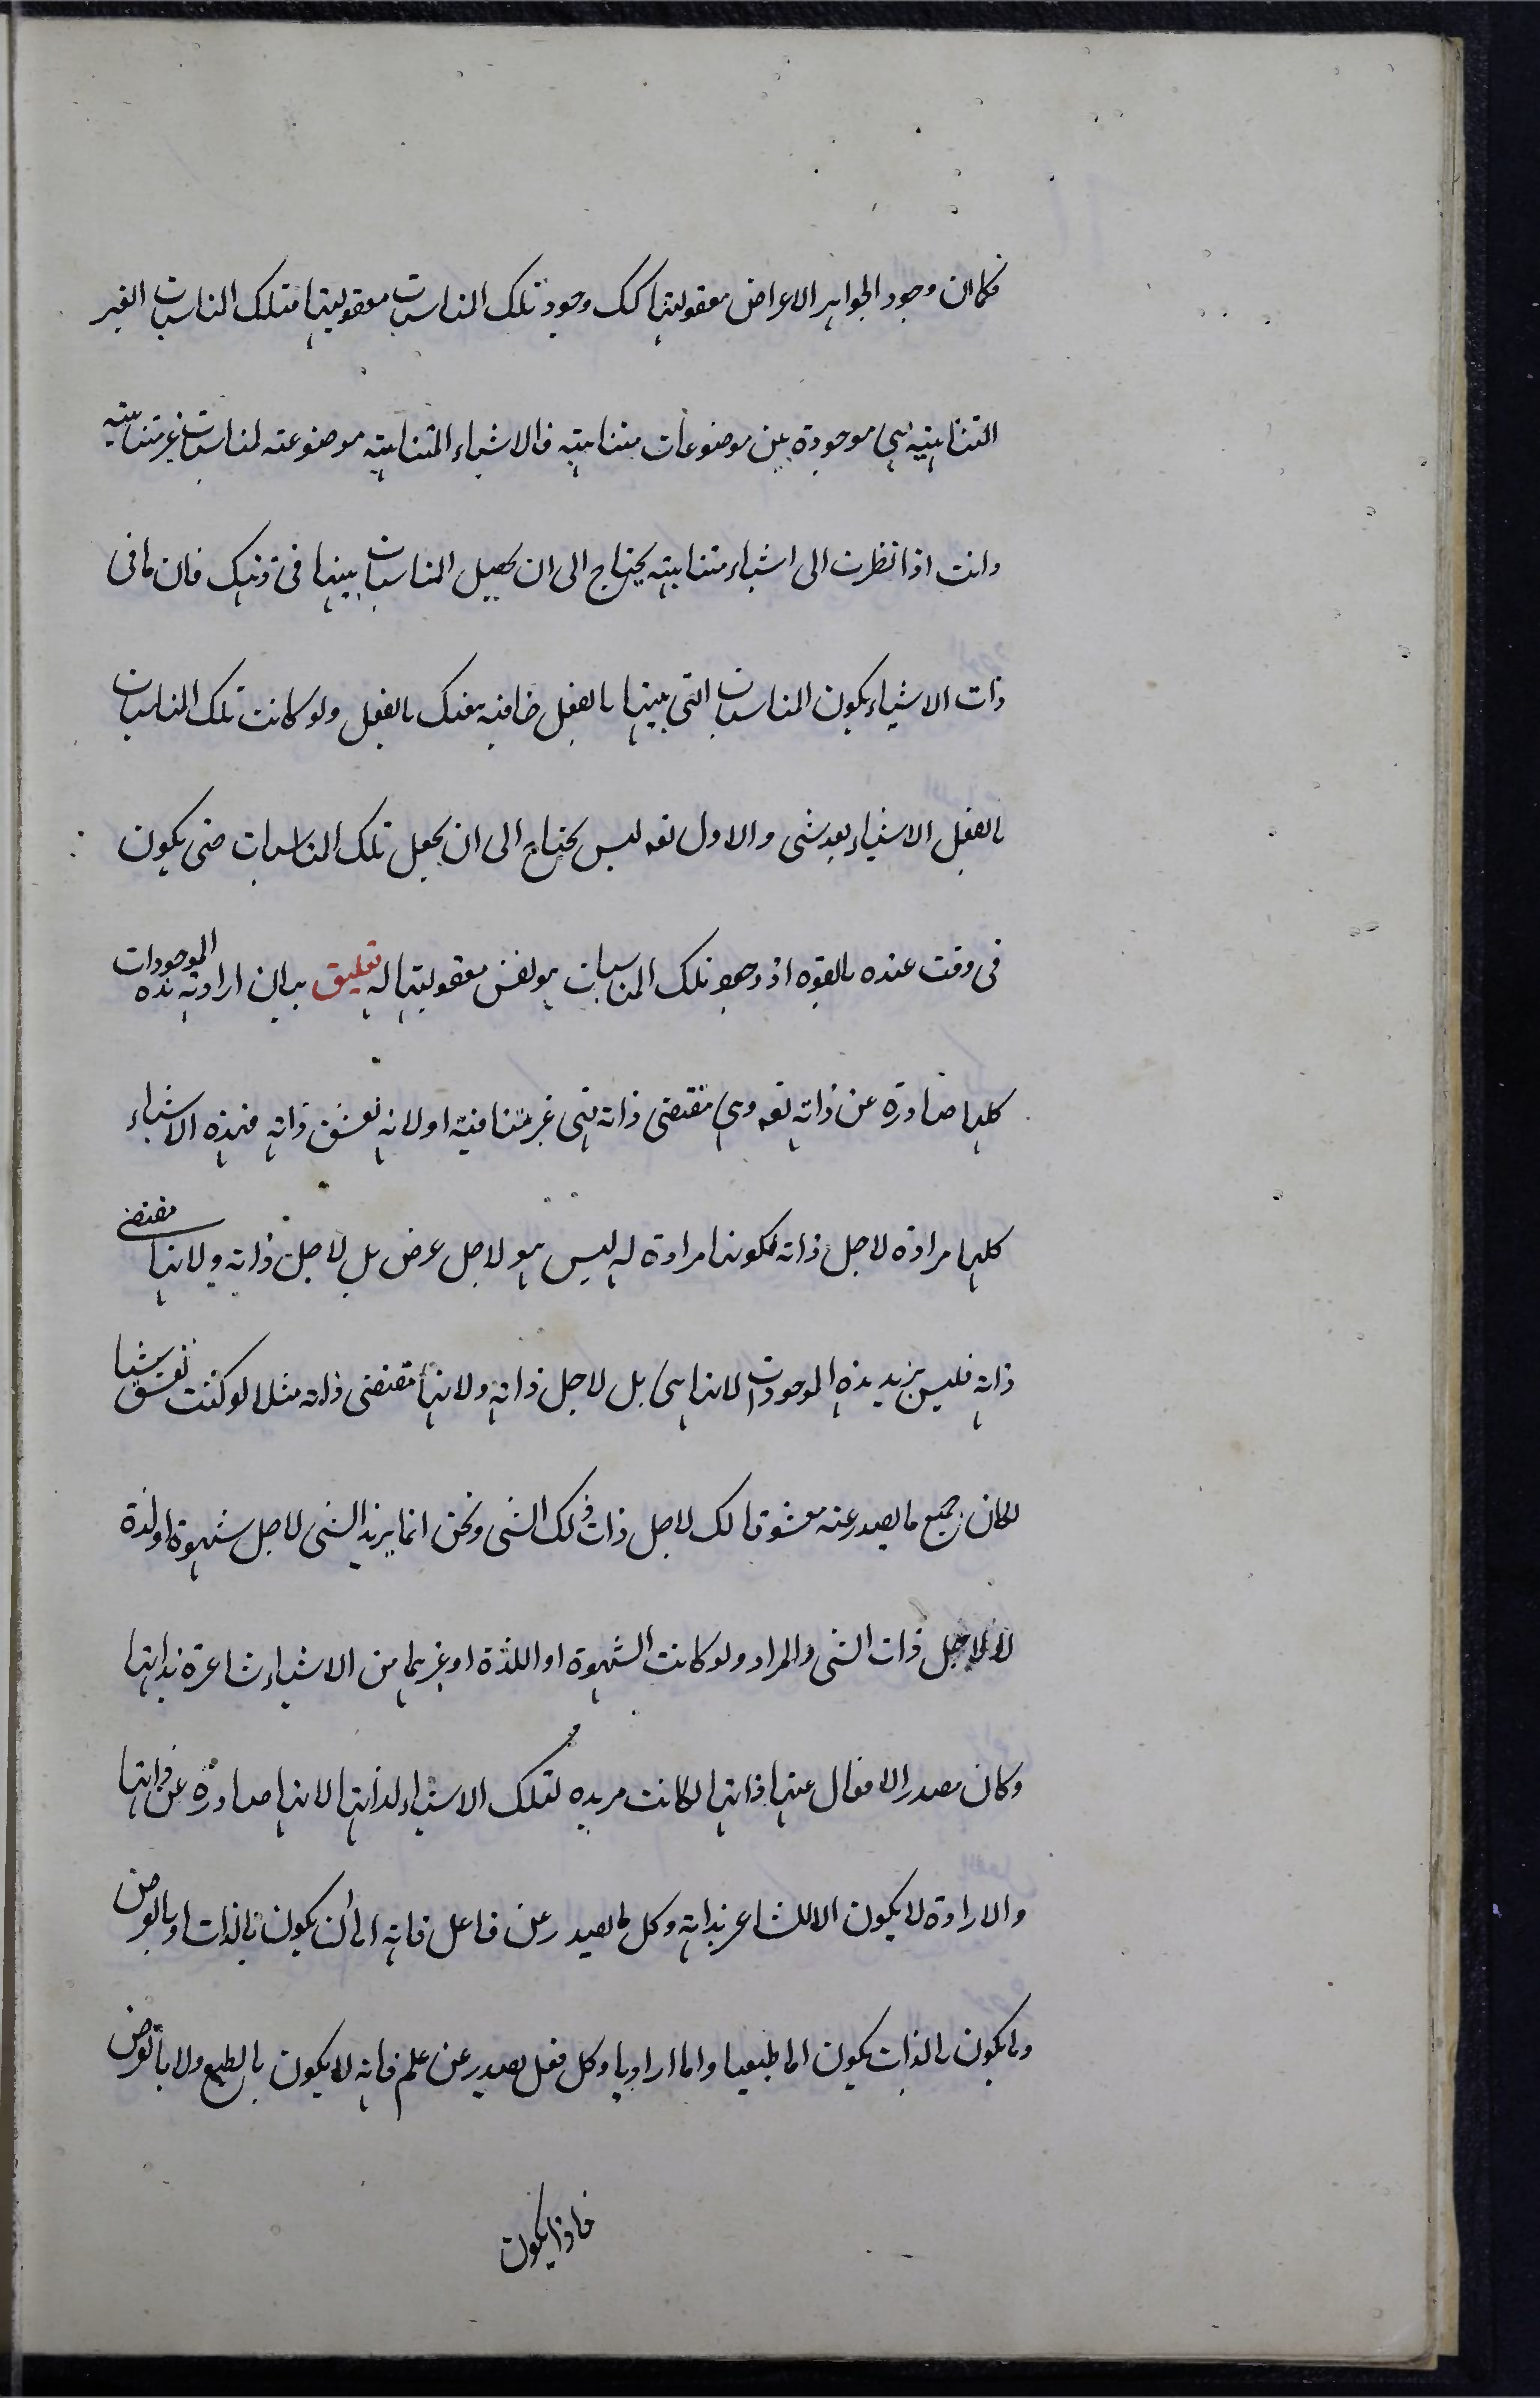 فكان وجود الجواهر الاعراض معقوليتها كك وجود تلك المناسبات معقوليتها فتلك المناسبات الغير
المتناهيته هى موجودة بين موضوعات متناهيته فالاشياء المتناهيته موضوعته لمناسبات غير متناهيته
وانت اذا نظرت الى اشياء متناهيته يحتاج الى ان يحصل المناسبات بينها فى ذهنك فان ما فى
ذات الاشياء يكون المناسبات التى بينها بالفعل بالفعل ولو كانت تلك المناسبات
بالفعل الاشياء بعد شى والاول تعه ليس يحتاج الى ان يجعل تلك المناسبات حتى يكون
فى وقت عنده بالقوه اذ وجود تلك المناسبات هو نفس معقوليتها له تعليق بيان ارادته هذه الموجودات
كلها صادرة عن ذاته تعه وهى مقتضى ذاته فهى غير متنافيته اولانه تعشق ذاته فهذه الاشياء
كلها مرادة لاجل ذاته فكونها مرادة له ليس هو لاجل عرض بل لاجل ذاته ولانها مقتضى
ذاته فليس يريد هذه الموجودات لانها هى بل لاجل ذاته ولانها مقتضى ذاته مثلا لو كنت تعشق شيا
لكان جميع ما يصدر عنه معشوقا لك لاجل ذات ذلك الشى ونحن انما يريد الشى لاجل شهوة اولذة
لا لاجل ذات الشى والمراد ولو كانت الشهوة او اللذة او غيرهما من الاشياء شاعرة بذاتها
وكان مصدر الافعال عنها ذاتها لكانت مريده لتلك الاشياء لذاتها لانها صادرة عن ذاتها
والارادة لا يكون الا لشاعر بذاته وكل ما يصدر عن فاعل فانه اما ان يكون بالذات او بالعرض
وما يكون بالذات يكون اما طبيعيا واما اراديا وكل فعل يصدر عن علم فانه لا يكون بالطبع ولا بالعرض
فاذا يكون